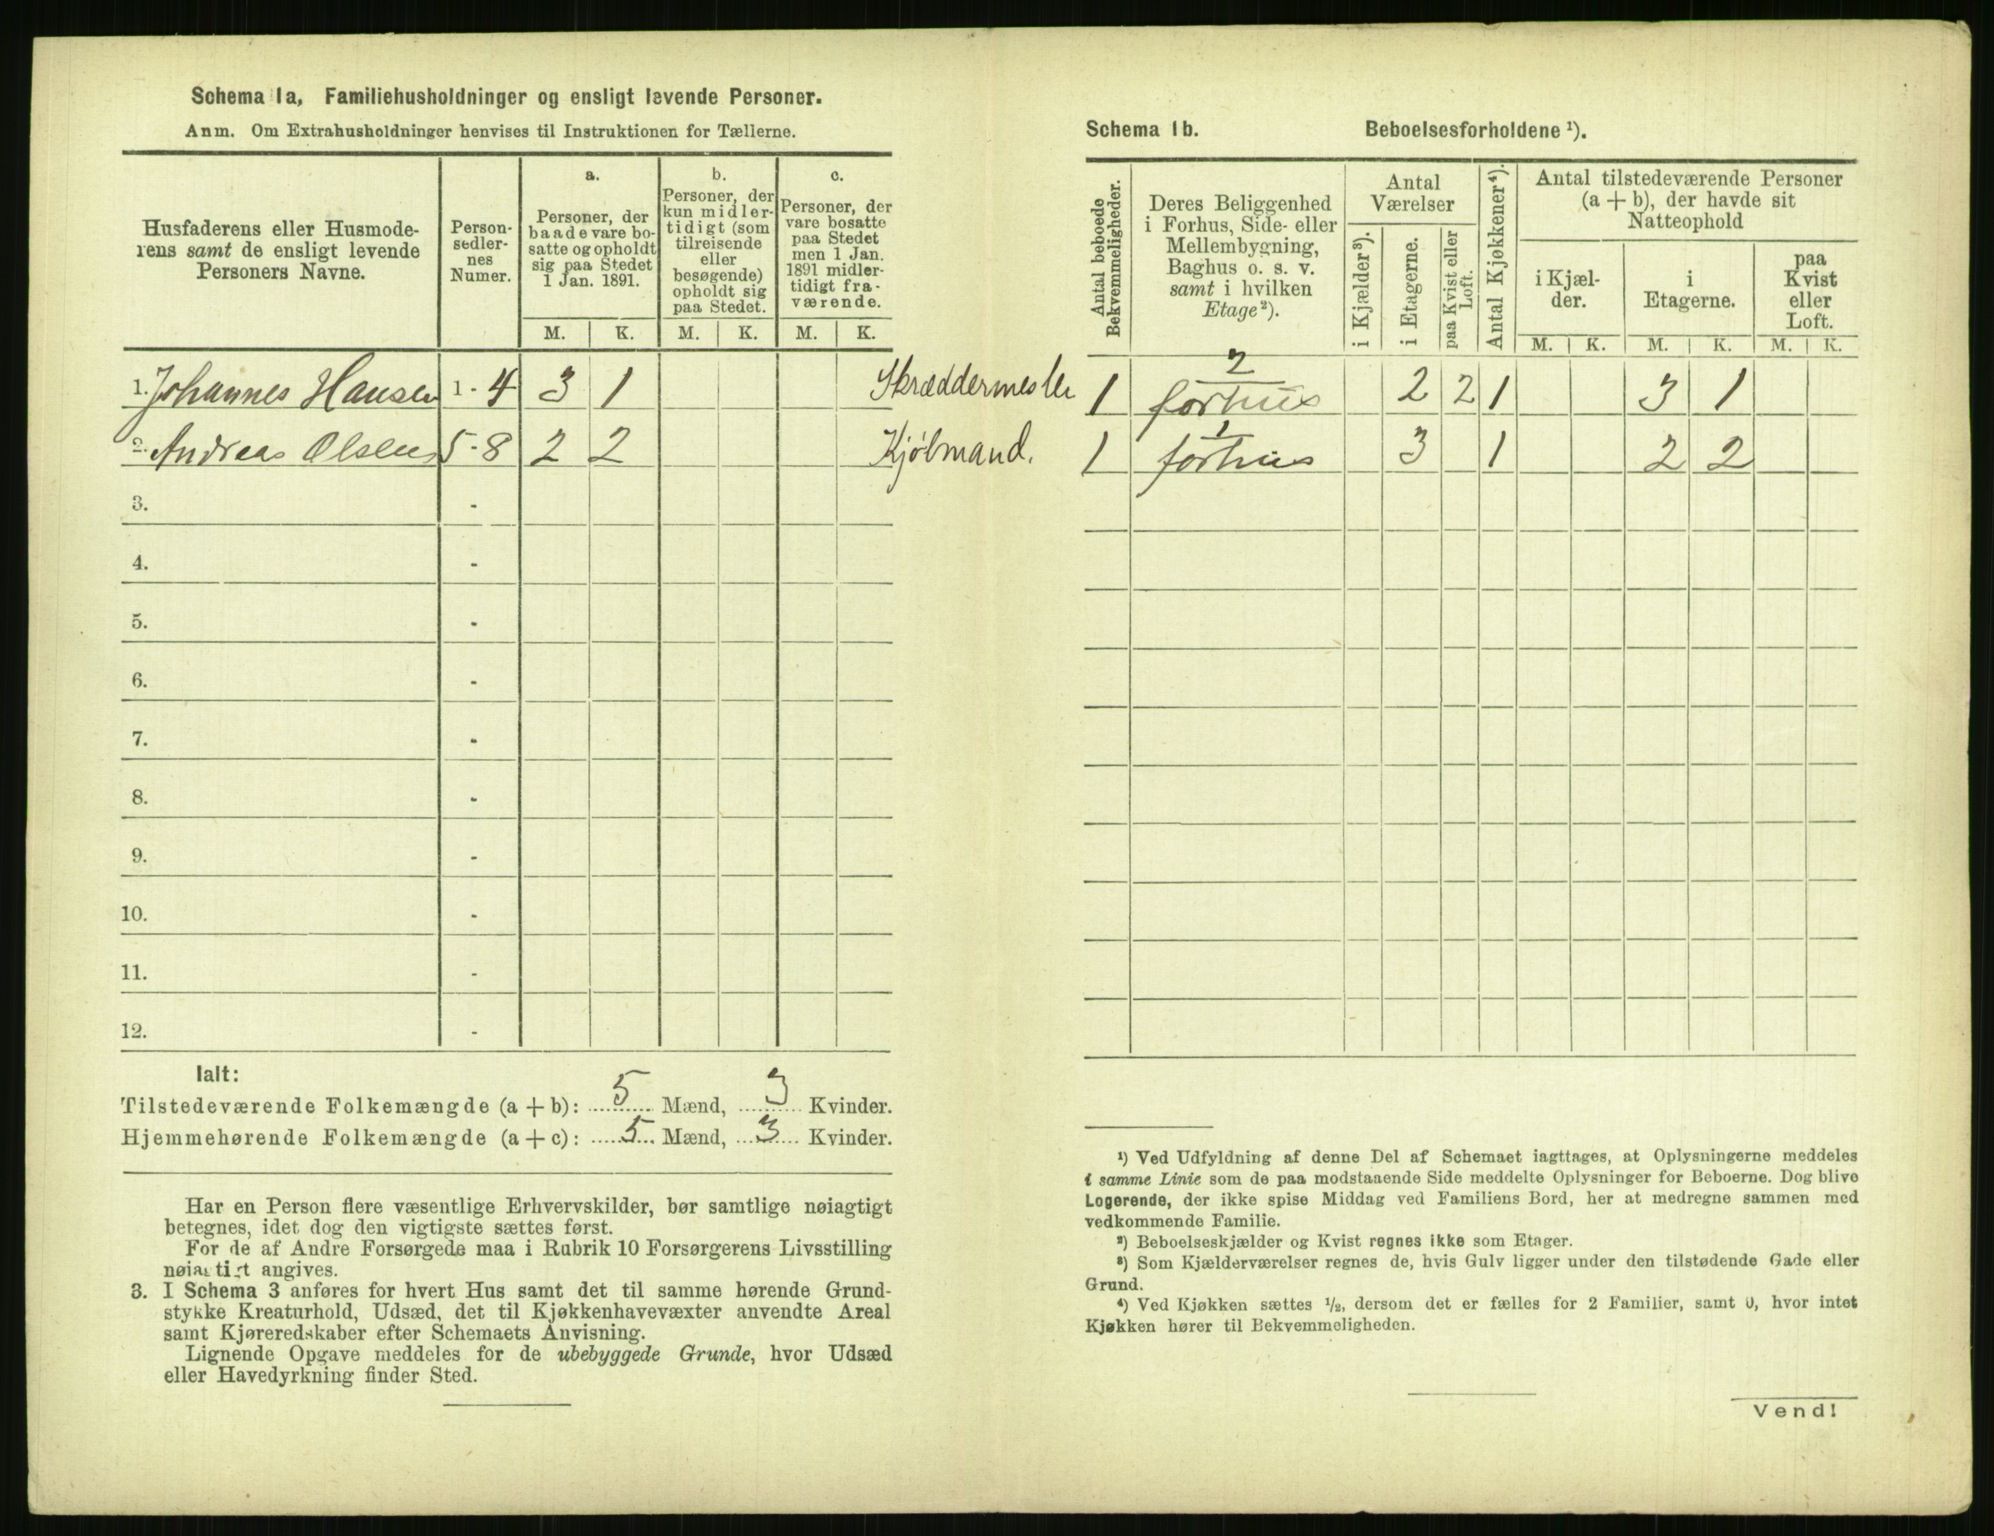 Schema 1a, Familiehusholdninger og ensligt levende Personer.
Anm. Om Extrahusholdninger henvises til Instruktionen for Tællerne.
Husfaderens eller Husmode-
rens samt de ensligt levende
Personers Navne.
Person-
sedler-
nes
Numer.
a.
Personer, der
baade vare bo-
satte og opholdt
sig paa Stedet
1 Jan. 1891.
b.
Personer, der
kun midler-
tidigt (som
tilreisende
eller
besøgende)
opholdt sig
paa Stedet.
c.
Personer, der
vare bosatte
paa Stedet
men 1 Jan.
1891 midler-
tidigt fra-
værende.
M. K. M. K. M. K.
1. Johannes Hansen 1 - 4 3 1 Skræddermester
2. Andreas Olsen 5 - 8 2 2 Kjøbmand.
3. -
4. -
5. -
6. -
7. -
8. -
9. -
10. -
11. -
12. -
Ialt:
Tilstedeværende Folkemængde (a + b): 5 Mænd, 3 Kvinder.
Hjemmehørende Folkemængde (a + c): 5 Mænd, 3 Kvinder.
Har en Person flere væsentlige Erhvervskilder, bør samtlige nøiagtigt
betegnes, idet dog den vigtigste sættes først.
For de af Andre Forsørgede maa i Rubrik 10 Forsørgerens Livsstilling
nøiagtigt angives.
3. I Schema 3 anføres for hvert Hus samt det til samme hørende Grund-
stykke Kreaturhold, Udsæd, det til Kjøkkenhavevæxter anvendte Areal
samt Kjøreredskaber efter Schemaets Anvisning.
Lignende Opgave meddeles for de ubebyggede Grunde, hvor Udsæd
eller Havedyrkning finder Sted.
Schema 1b. Beboelsesforholdene ¹).
Antal beboede
Bekvemmeligheder.
Deres Beliggenhed
i Forhus, Side- eller
Mellembygning,
Baghus o. s. v.
samt i hvilken
Etage²).
Antal
Værelser
i Kjælder³).
i Etagerne.
paa Kvist eller
Loft.
Antal Kjøkkener⁴).
Antal tilstedeværende Personer
(a + b), der havde sit
Natteophold
i Kjæl-
der.
i
Etagerne.
paa
Kvist
eller
Loft.
M. K. M. K. M. K.
2
1 forhus 2 2 1 3 1
1
1 forhus 3 1 2 2
¹) Ved Udfyldning af denne Del af Schemaet iagttages, at Oplysningerne meddeles
i samme Linie som de paa modstaaende Side meddelte Oplysninger for Beboerne. Dog blive
Logerende, der ikke spise Middag ved Familiens Bord, her at medregne sammen med
vedkommende Familie.
²) Beboelseskjælder og Kvist regnes ikke som Etager.
³) Som Kjælderværelser regnes de, hvis Gulv ligger under den tilstødende Gade eller
Grund.
⁴) Ved Kjøkken sættes ½, dersom det er fælles for 2 Familier, samt 0, hvor intet
Kjøkken hører til Bekvemmeligheden.
Vend!